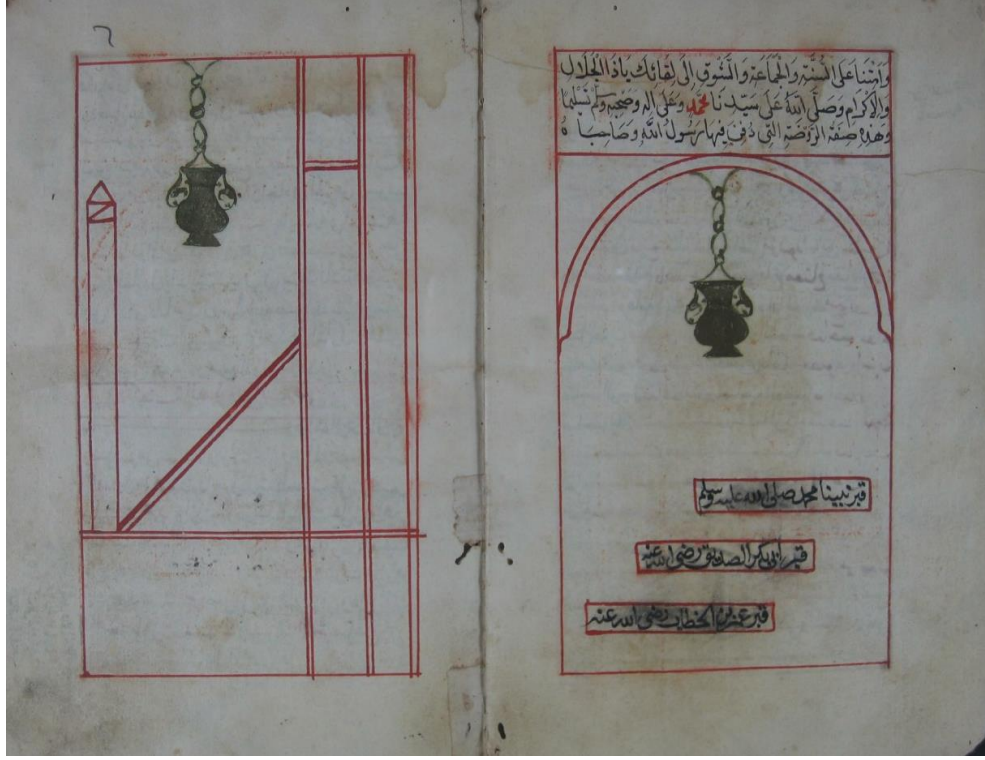 وَأَمِتْنَا عَلَى السُّنَّةِ وَالْجَمَاعَةِ وَالشَّوْقِ إِلَى لِقَائِكَ يَا ذَا الْجَلَالِ
وَالْإِكْرَامِ وَصَلَّى اللهُ عَلَى سَيِّدِنَا مُحَمَّد وَعَلَى الِهِ وَصَحْبِهِ وَسَلَّم تَسْلِيمًا
وَهَذِهِ صِفَةُ الرَّوْضَةِ الَّتِي دُفِنَ فِيهَا رَسُولُ اللَّهِ وَصَاحِبَاهُ
قبر نبينا محمد صلى الله عليه وسلم
قبر أبي بكر الصديق رضي الله عنه
قبر عمر بن الخطاب رضي الله عنه
٦